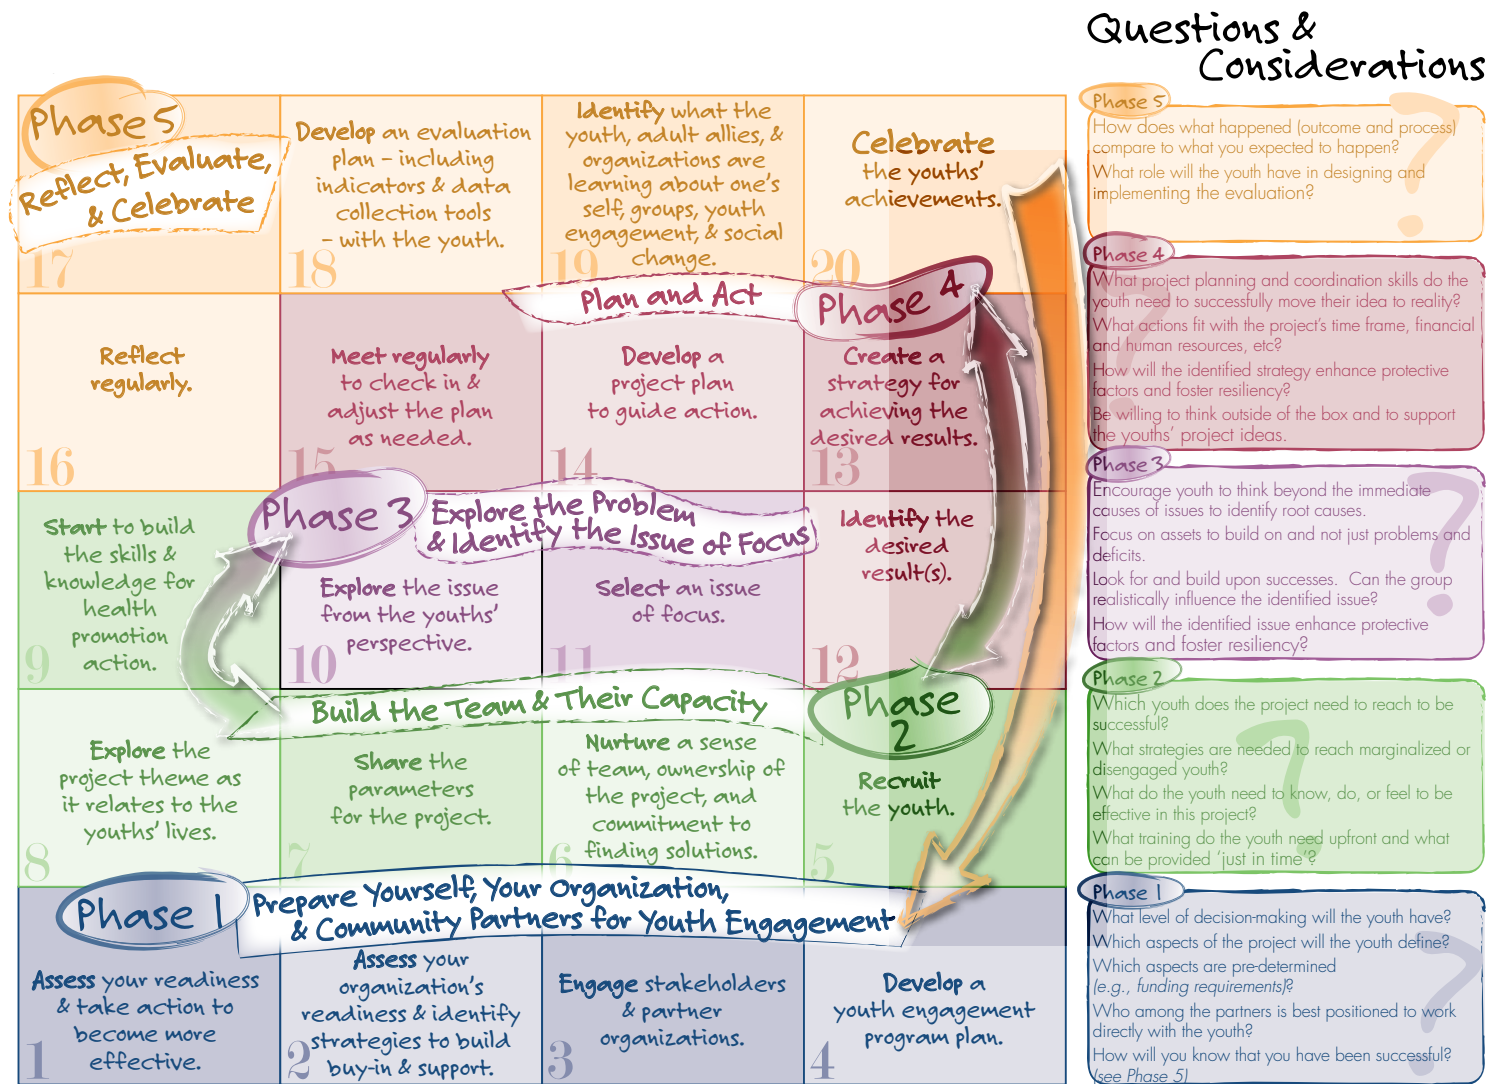 Questions &
Considerations
Phase 5
Reflect, Evaluate,
& Celebrate
17
Develop an evaluation
plan – including
indicators & data
collection tools
– with the youth.
18
Identify what the
youth, adult allies, &
organizations are
learning about one's
self, groups, youth
engagement, & social
change.
19
Celebrate
the youths'
achievements.
20
Plan and Act
Phase 4
Reflect
regularly.
16
Meet regularly
to check in &
adjust the plan
as needed.
15
Develop a
project plan
to guide action.
14
Create a
strategy for
achieving the
desired results.
13
Phase 3
Explore the Problem
& Identify the Issue of Focus
Start to build
the skills &
knowledge for
health
promotion
action.
9
Explore the issue
from the youths'
perspective.
10
Select an issue
of focus.
11
Identify the
desired
result(s).
12
Build the Team & Their Capacity
Phase
2
Explore the
project theme as
it relates to the
youths' lives.
8
Share the
parameters
for the project.
7
Nurture a sense
of team, ownership of
the project, and
commitment to
finding solutions.
6
Recruit
the youth.
5
Phase 1
Prepare Yourself, Your Organization,
& Community Partners for Youth Engagement
Assess your readiness
& take action to
become more
effective.
1
Assess your
organization's
readiness & identify
strategies to build
buy-in & support.
2
Engage stakeholders
& partner
organizations.
3
Develop a
youth engagement
program plan.
4
Phase 5
How does what happened (outcome and process)
compare to what you expected to happen?
What role will the youth have in designing and
implementing the evaluation?
?
Phase 4
What project planning and coordination skills do the
youth need to successfully move their idea to reality?
What actions fit with the project's time frame, financial
and human resources, etc?
How will the identified strategy enhance protective
factors and foster resiliency?
Be willing to think outside of the box and to support
the youths' project ideas.
?
Phase 3
Encourage youth to think beyond the immediate
causes of issues to identify root causes.
Focus on assets to build on and not just problems and
deficits.
Look for and build upon successes. Can the group
realistically influence the identified issue?
How will the identified issue enhance protective
factors and foster resiliency?
?
Phase 2
Which youth does the project need to reach to be
successful?
What strategies are needed to reach marginalized or
disengaged youth?
What do the youth need to know, do, or feel to be
effective in this project?
What training do the youth need upfront and what
can be provided 'just in time'?
?
Phase 1
What level of decision-making will the youth have?
Which aspects of the project will the youth define?
Which aspects are pre-determined
(e.g., funding requirements)?
Who among the partners is best positioned to work
directly with the youth?
How will you know that you have been successful?
(see Phase 5)
?